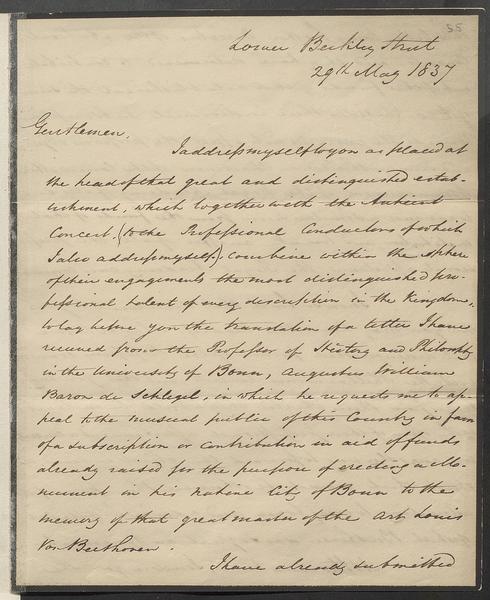 55
Lower Berkley Street
29th May 1837
Gentlemen.
I address myself to you as placed at
the head of that great and distinguished estab-
lishment, which together with the Antient
Concert, (to the Professional Conductors of which
I also address myself,) combine within the sphere
of their engagements the most distinguished pro-
fessional talent of every description in the Kingdom,
to lay before you the translation of a letter I have
received from the Professor of History and Philosophy
in the University of Bonn, Augustus William
Baron de Schlegel, in which he requests me to ap-
peal to the musical public of this Country in favr
of a subscription or contribution in aid of funds
already raised for the purpose of erecting a Mo-
nument in his native City of Bonn to the
memory of that great master of the Art Louis
Von Beethoven.
I have already submitted